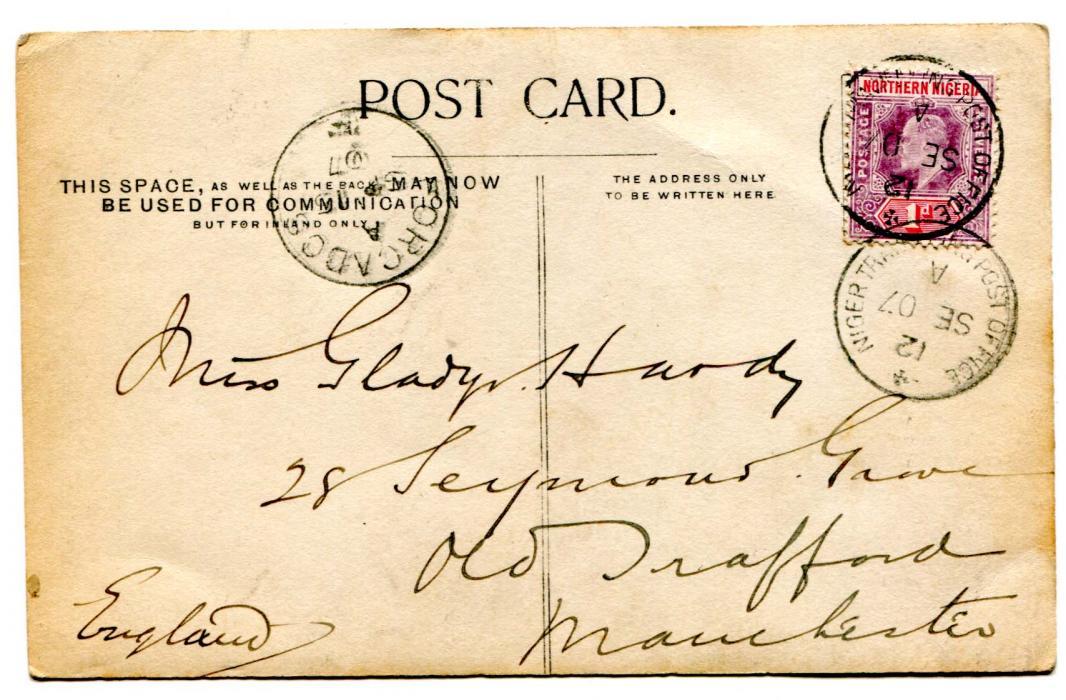 POST CARD.
THIS SPACE, AS WELL AS THE BACK, MAY NOW
BE USED FOR COMMUNICATION
BUT FOR INLAND ONLY.
THE ADDRESS ONLY
TO BE WRITTEN HERE
NORTHERN NIGERIA
POSTAGE
1d
POST OFFICE
A
SE 07
12
NIGER TRA POST OFFICE
A
SE 07
12
FORCADOS
A
SP
07
Miss Gladys Hardy
28 Seymour Grove
Old Trafford
Manchester
England